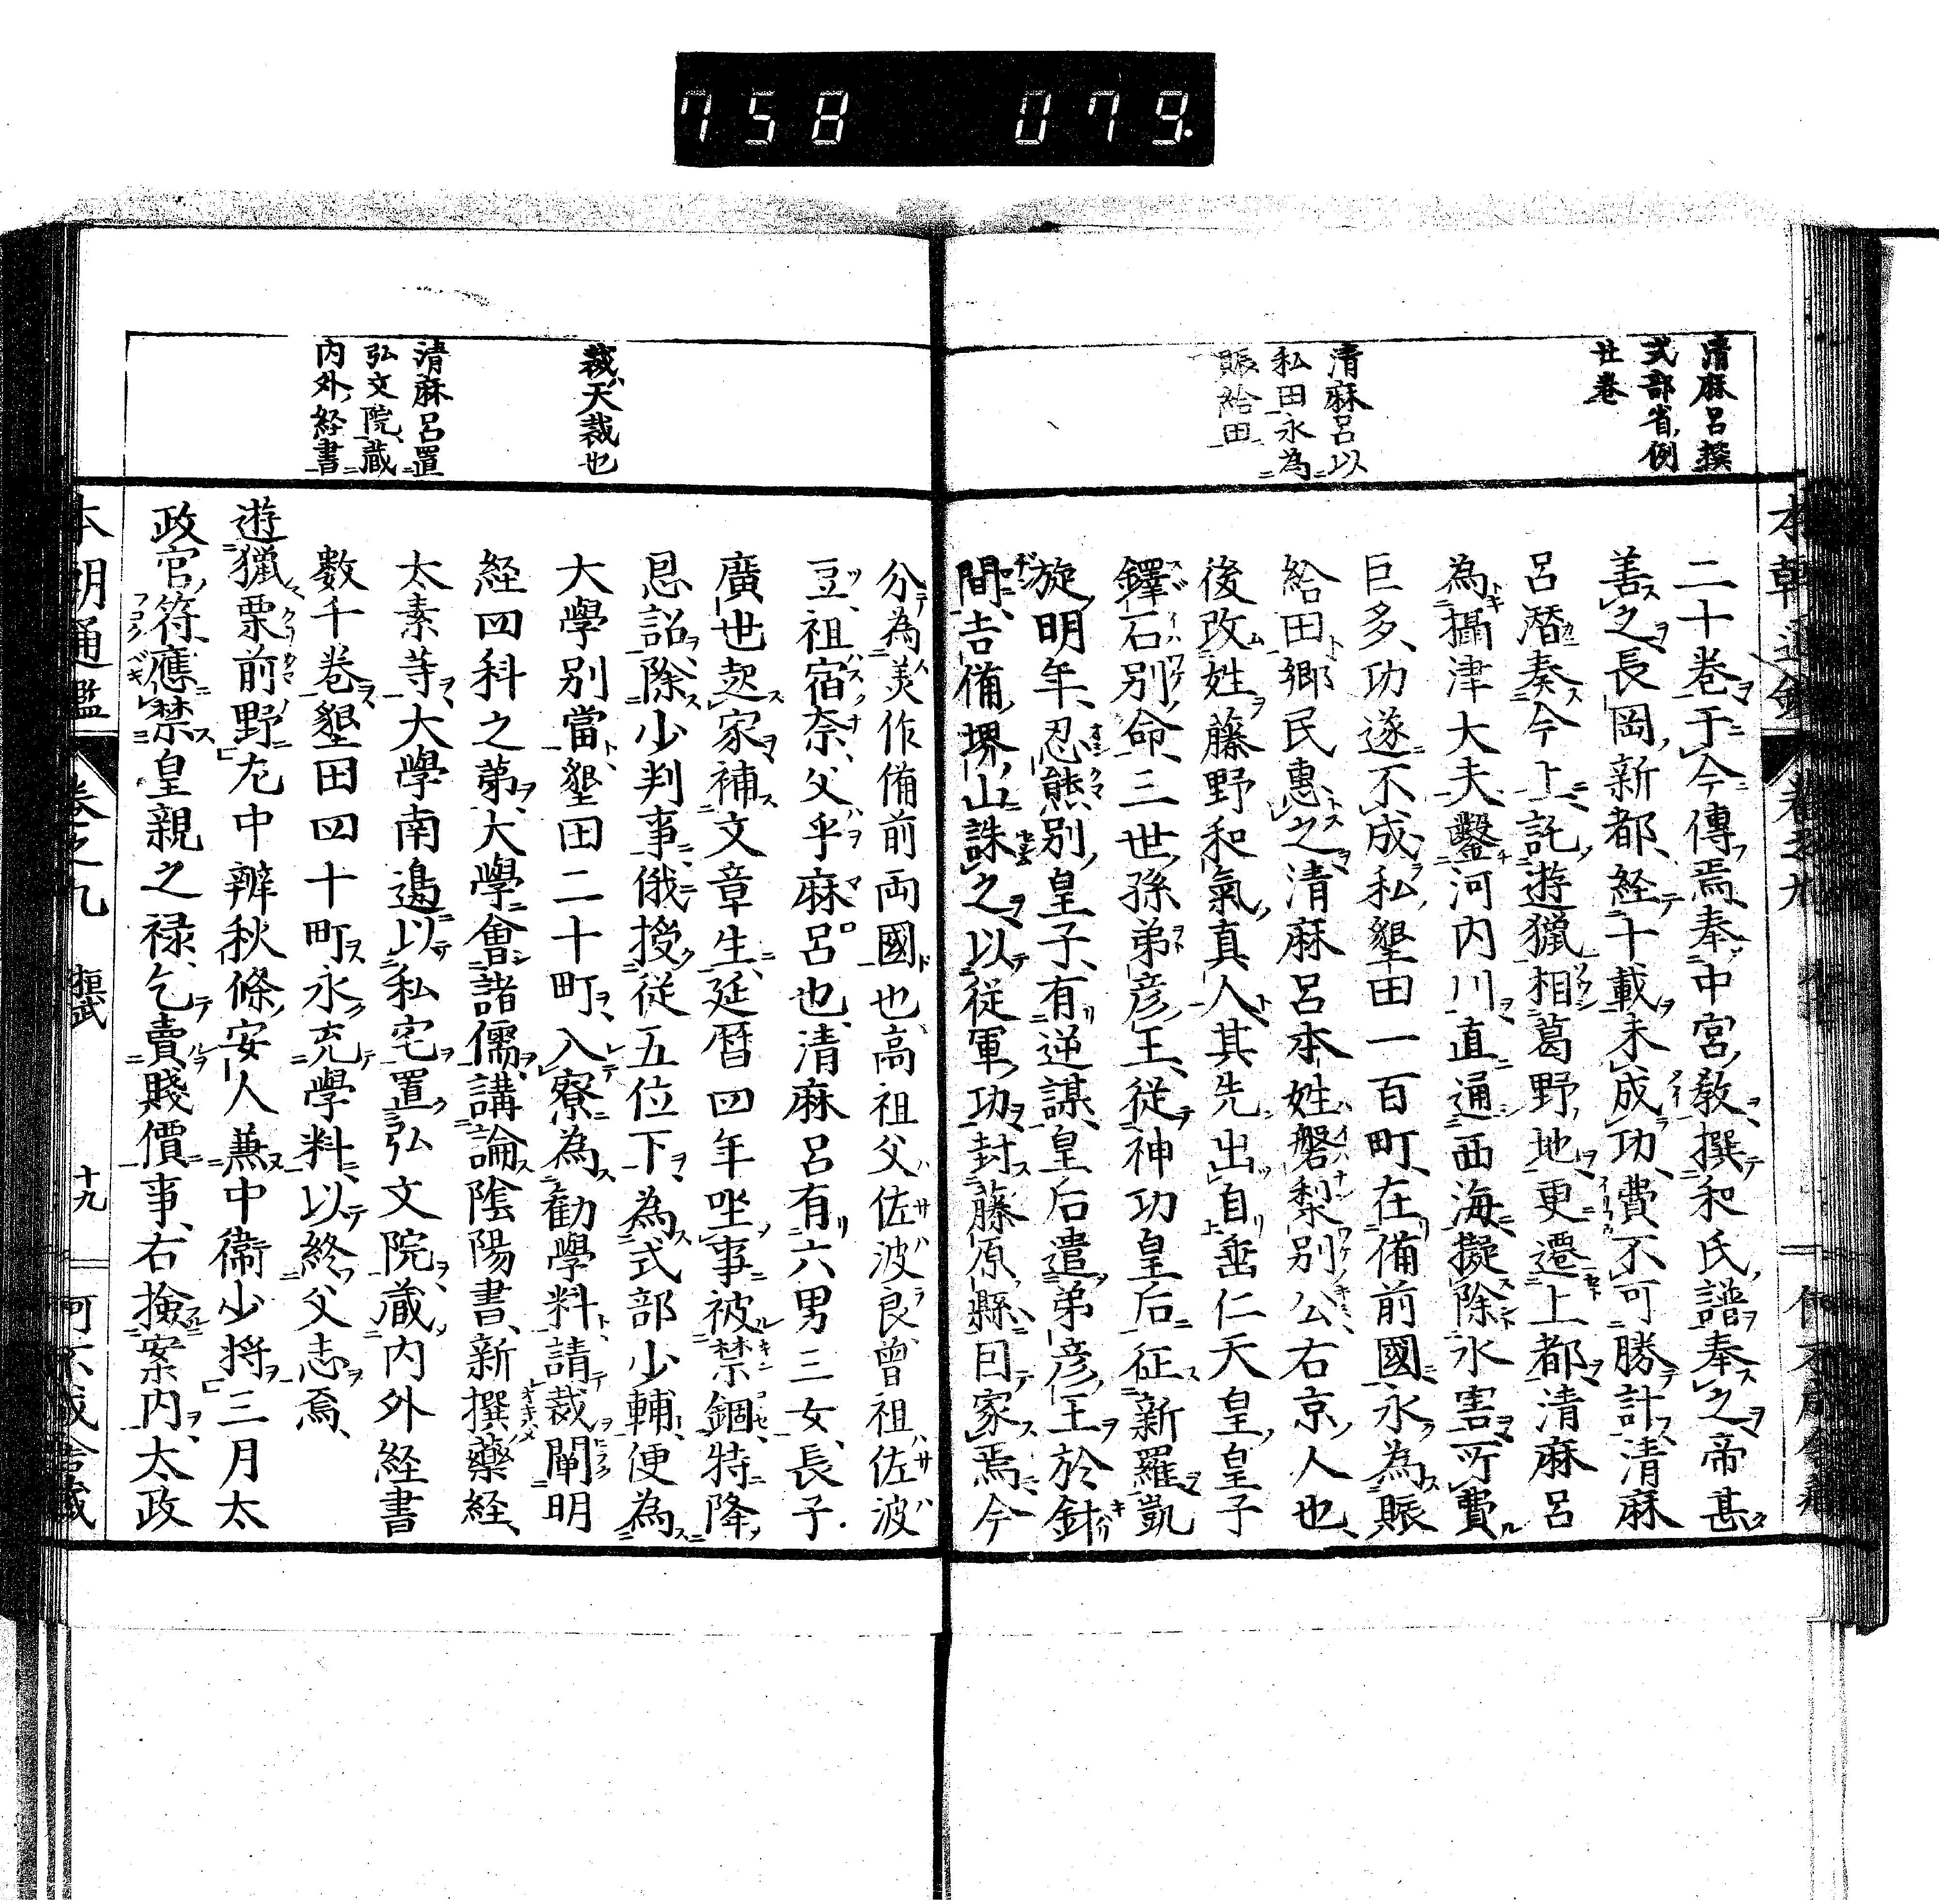 758 079.
清麻呂撰
式部省例
廿巻
清麻呂以
私田永為
賑給田
二十巻于今傳焉奉中宮教撰和氏譜奉之帝甚
善之長岡新都経十載未成功費不可勝計清麻
呂潛奏今上託遊獵相葛野地更遷上都清麻呂
為攝津大夫鑿河内川直通西海擬除水害所費
巨多功遂不成私墾田一百町在備前國永為賑
給田郷民惠之清麻呂本姓磐梨別公右京人也
後改姓藤野和氣真人其先出自垂仁天皇皇子
鐸石別命三世孫弟彦王従神功皇后征新羅凱
旋明年忍熊別皇子有逆謀皇后遣弟彦王於針
間吉備堺山誅之以従軍功封藤原縣因家焉今
裁天裁也
清麻呂置
弘文院蔵
内外経書
分為美作備前両國也高祖父佐波良曾祖佐波
豆祖宿奈父乎麻呂也清麻呂有六男三女長子
廣世起家補文章生延暦四年坐事被禁錮特降
恩詔除少判事俄授従五位下為式部少輔便為
大學別當墾田二十町入寮為勸學料請裁闡明
経四科之第大學會諸儒講論陰陽書新撰藥経
太素等大學南邉以私宅置弘文院蔵内外経書
數千巻墾田四十町永充學料以終父志焉
遊獵栗前野左中辨秋條安人兼中衞少将三月太
政官符應禁皇親之禄乞賣賤價事右撿案内太政
本朝通鑑 巻之九 桓武 十九